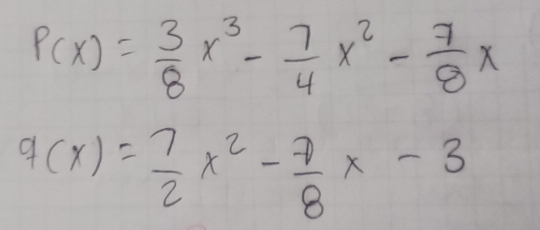 P(x) = 3/8 x³ - 7/4 x² - 7/8 x
q(x) = 7/2 x² - 7/8 x - 3